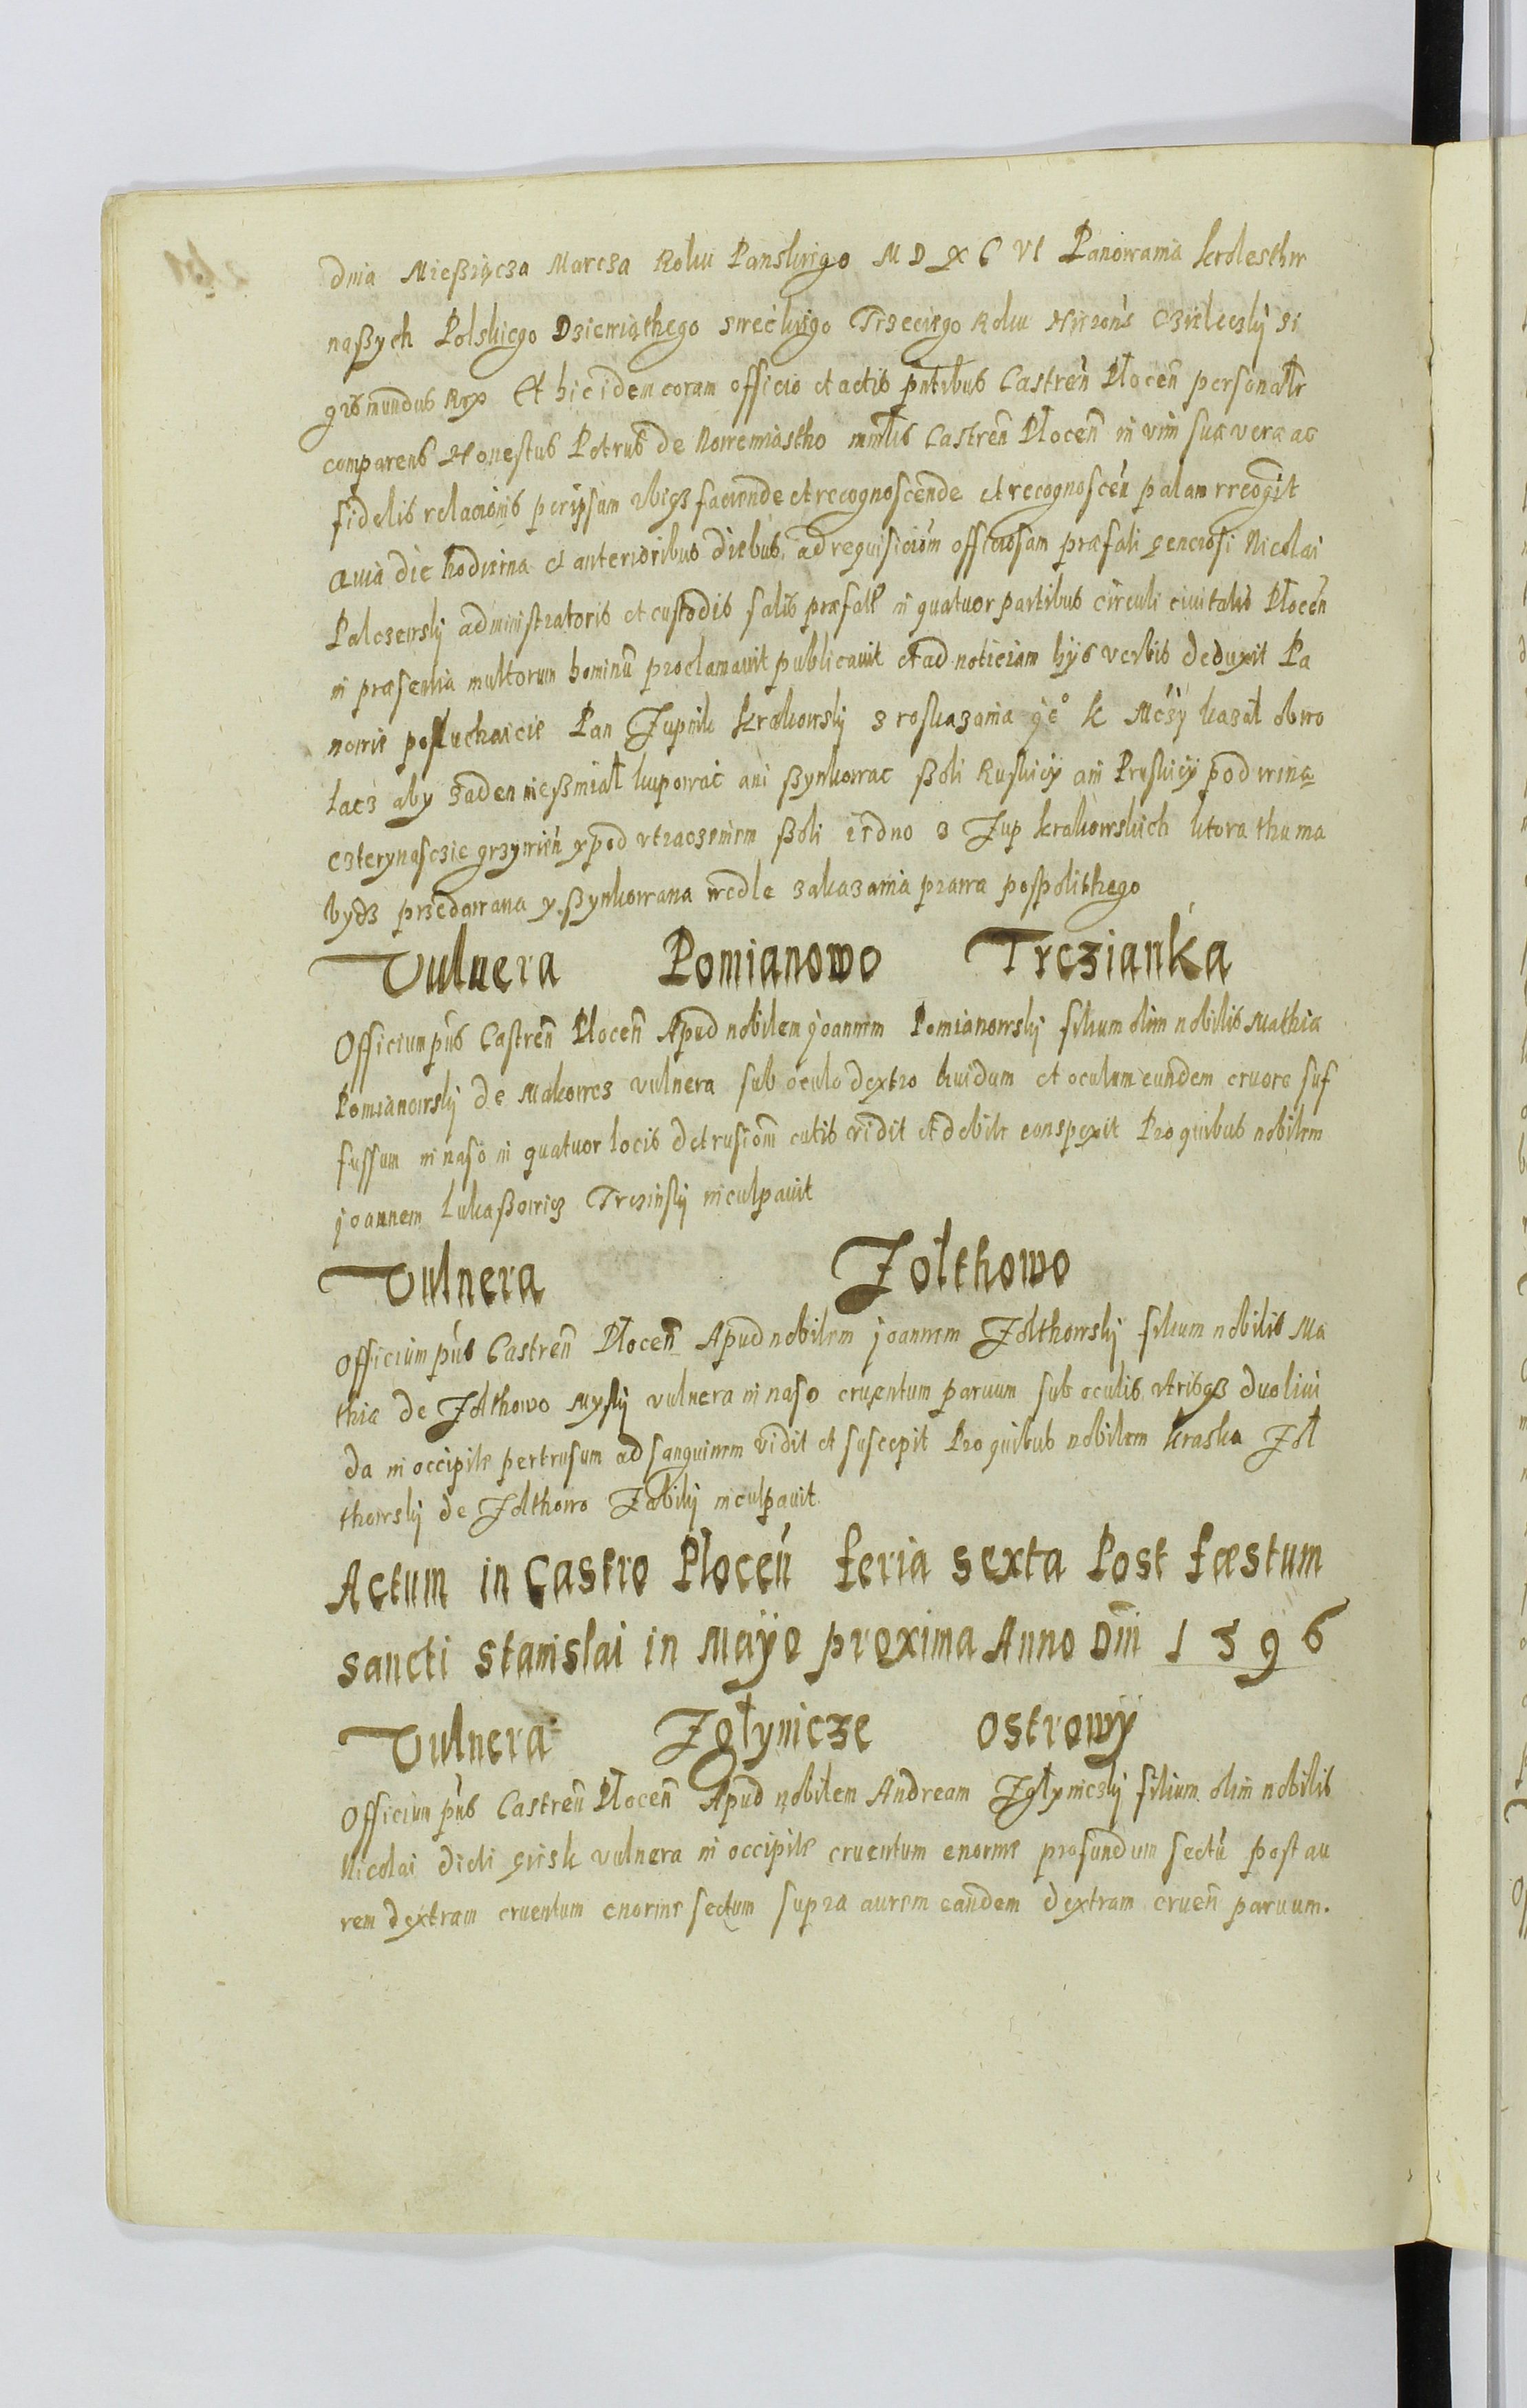 dnia Mießiącza Marcza Roku Panskiego M D X C VI Panowania krolesthw
naßych Polskiego Dziewiąthego swećkiego Trzeciego Roku Hieron's Czieleczkÿ Si
gismundus Rex Et hic idem coram officio et actis pñtibus Castreñ Płoceñ personałr
comparens Honestus Petrus de Nowemiastho minlis Castreñ Płoceñ in vim suæ veræ ac
fidelis relacionis per ipsum ibiqz faciende et recognoscende et recognosceń palam recogit
Quia die hodierna et anterioribus diebus, ad requisiciom officiosam præfati generosi Nicolai
Palczewskÿ administratoris et custodis salis præfat in quatuor partibus circuli civitatis Płoceñ
in præsentia multorum hominū proclamavit publicavit et ad noticiam hÿs verbis deduxit Pa
nowie posłuchaicie Pan Zupnik krakowskÿ z roskazania ge° K Mczÿ kazał obwo
lacz aby zaden nie ßmiał kupowac ani ßynkowac ßoli Ruskieÿ ani Pruskieÿ pod winą
czterynasczie grzywień y pod vtraczeniem ßoli iedno z Zup krakowskich ktora thu ma
bydz przedawana y ßynkowana wedle zakazania prawa pospolithego
Vulnera Pomianowo Trczianka
Officium pñs Castreñ Płoceñ Apud nobilem joannem Pomianowskÿ filium olim nobilis Mathiæ
Pomianowskÿ de Makowcz vulnera sub oculo dextro liuidum et oculum eundem cruore suf
fussum in naso in quatuor locis detrusiom cutis vidit et debite conspexit Pro quibus nobilem
joannem Lukaßowicz Trczinskÿ inculpavit
Vulnera Zołthowo
Officium pñs Castreñ Płoceñ Apud nobilem joannem Zołthowskÿ filium nobilis Ma
thiæ de Zołthowo Myskÿ vulnera in naso cruentum paruum sub oculis vtrisqz duo liui
da in occipite pertrusum ad sanguinem vidit et suscepit Pro quibus nobilem kraska Zoł
thowskÿ de Zołthowo Zabikÿ inculpavit
Actum in Castro Płoceñ feria sexta Post fæstum
sancti stanislai in Mayo proxima Anno Dñi 1596
Vulnera Zołynicze Ostrowÿ
Officium pñs Castreñ Płoceñ Apud nobilem Andream Zołyniczkÿ filium olim nobilis
Nicolai dicti grisk vulnera in occipite cruentum enorme profundum sectū post au
rem dextram cruentum enorme sectum supra aurem eandem dextram crueñ paruum.